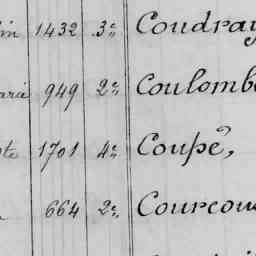 1432 3e Coudray
949 2e Coulomb
1701 4e Coupé,
664 2e Courcou